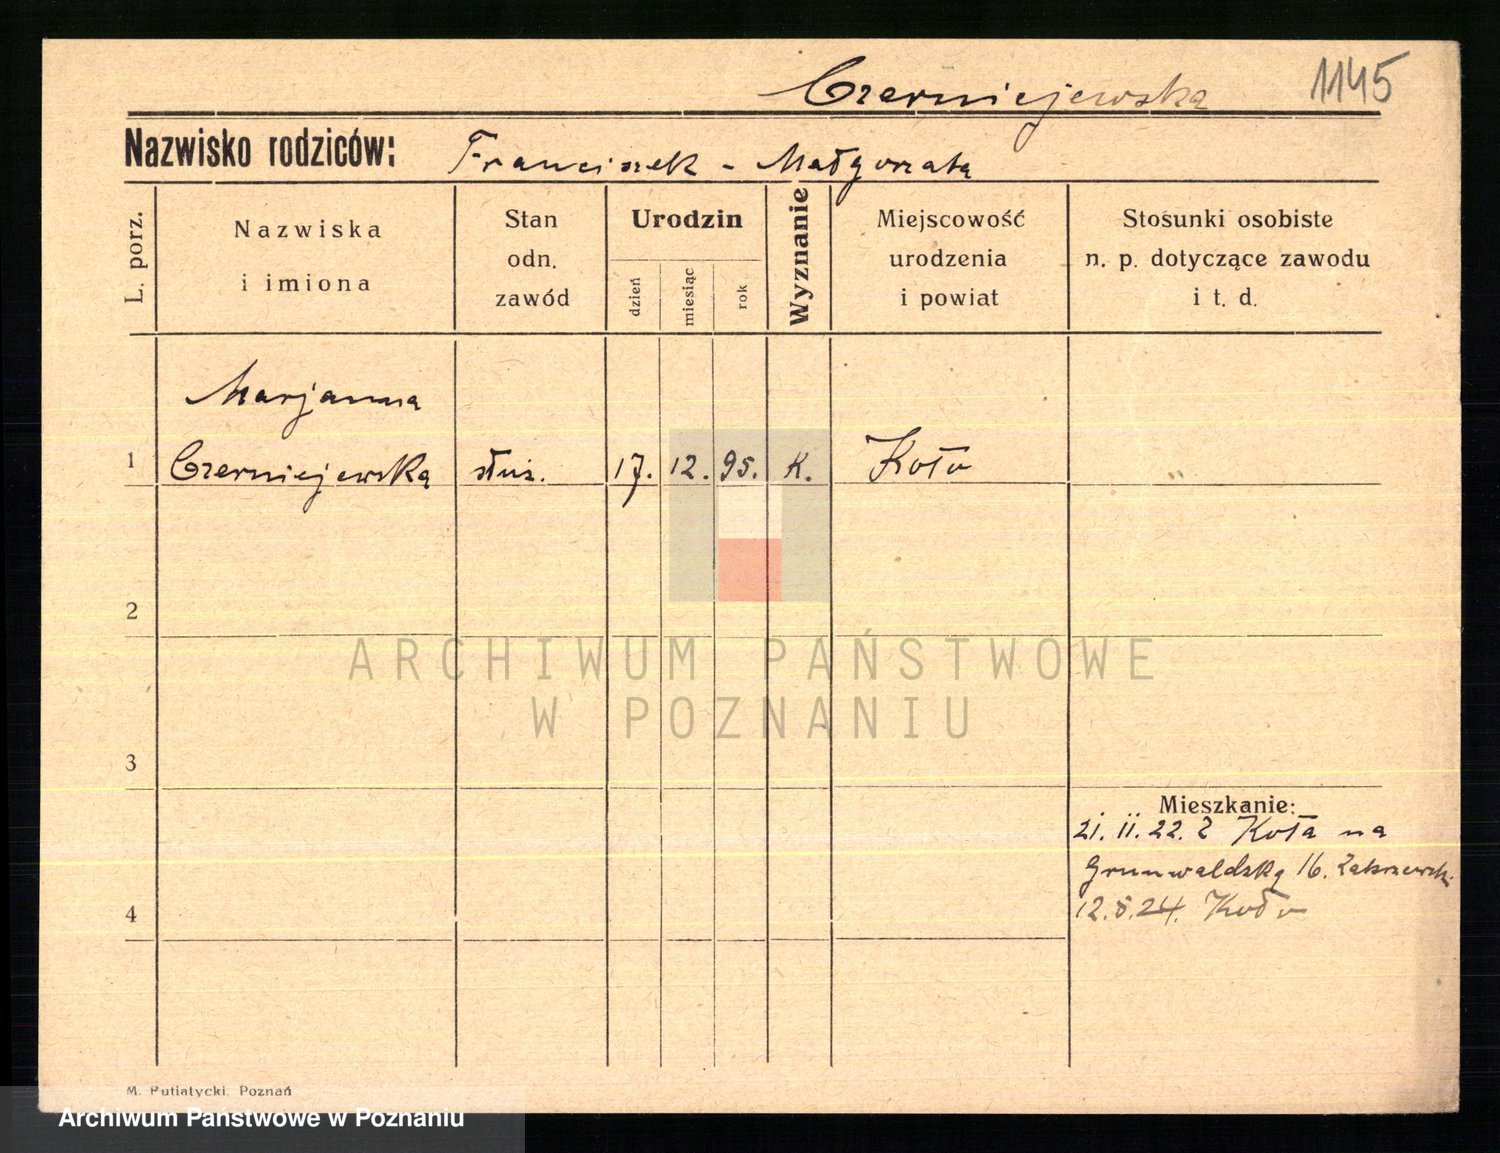 Czerniejewska 1145
Nazwisko rodziców: Franciszek - Małgorzata
L. porz.
Nazwiska
i imiona
Stan
odn.
zawód
Urodzin
dzień
miesiąc
rok
Wyznanie
Miejscowość
urodzenia
i powiat
Stosunki osobiste
n. p. dotyczące zawodu
i t. d.
Marjanna
1 Czerniejewska służ. 17. 12. 95. K. Koło
2
ARCHIWUM PAŃSTWOWE
W POZNANIU
3
Mieszkanie:
21. II. 22. z Koła na
Grunwaldzką 16.
4 12.8.24. Koło
M. Putiatycki, Poznań
Archiwum Państwowe w Poznaniu